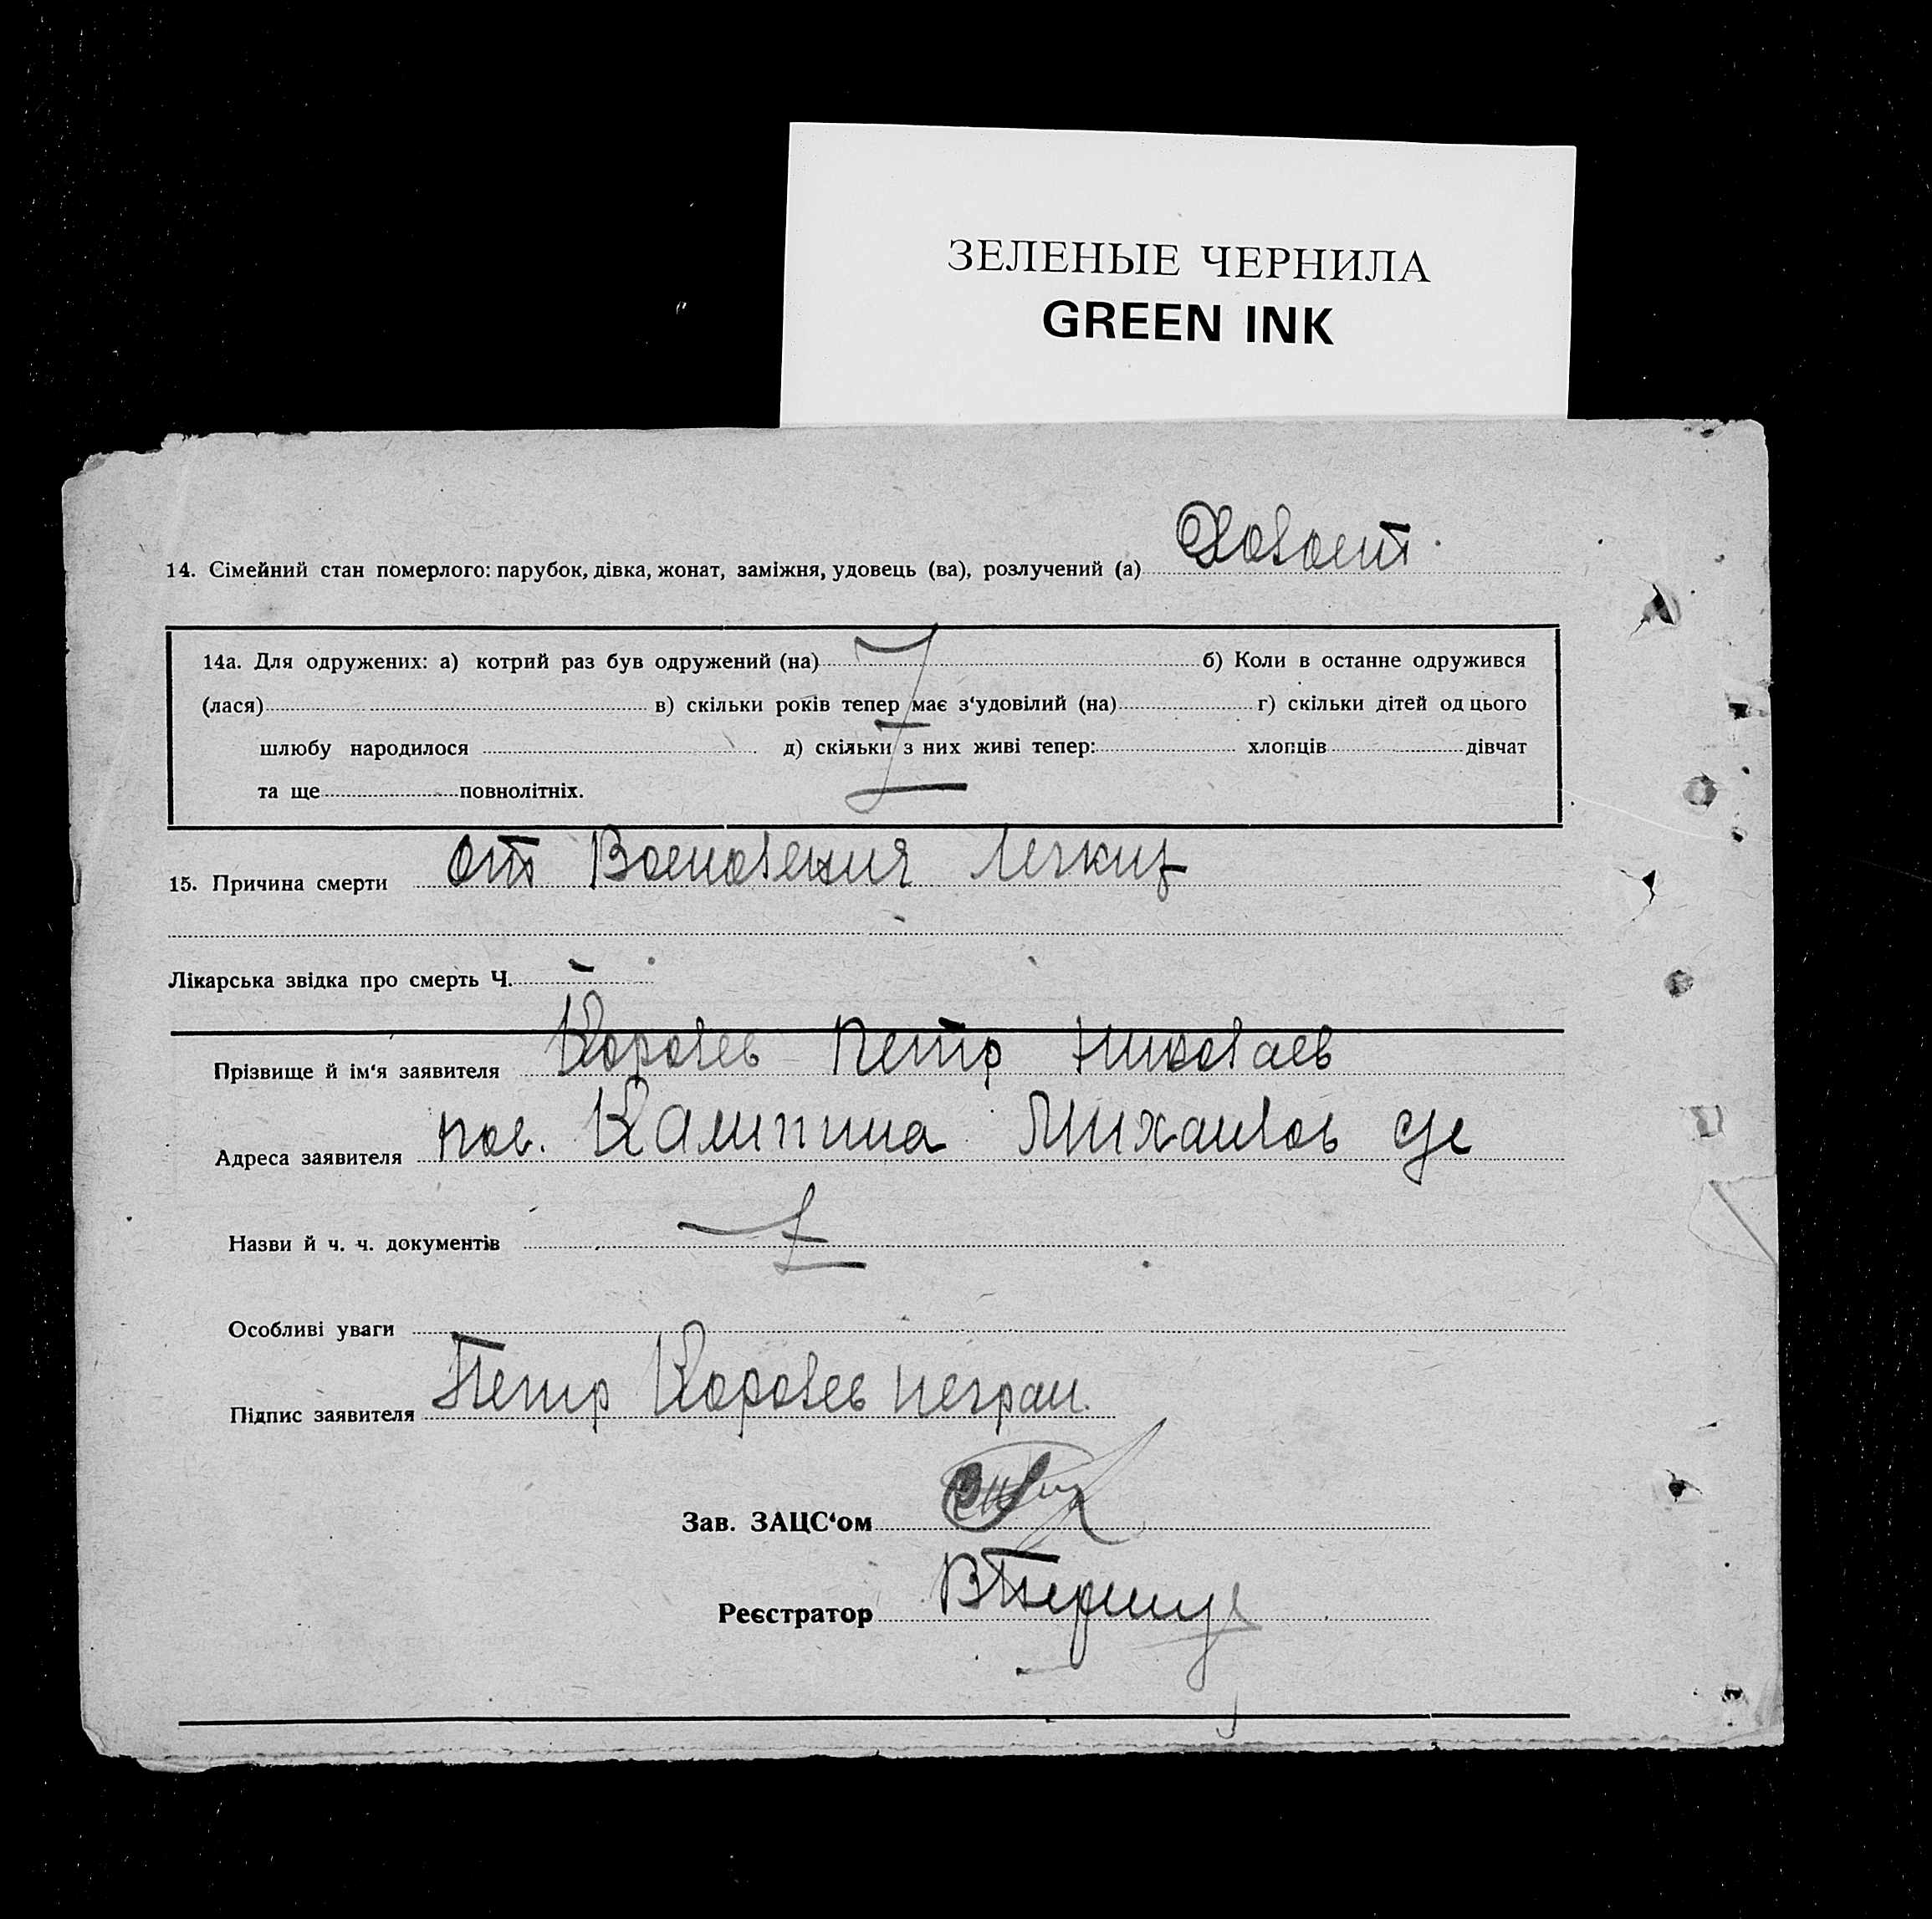 ЗЕЛЕНЫЕ ЧЕРНИЛА
GREEN INK
14. Сімейний стан померлого: парубок, дівка, жонат, заміжня, удовець (ва), розлучений (а) Холост.
14а. Для одружених: а) котрий раз був одружений (на) б) Коли в останне одружився
(лася) в) скільки років тепер має з‘удовілий (на) г) скільки дітей од цього
шлюбу народилося д) скільки з них живі тепер: хлопців дівчат
та ще повнолітніх.
15. Причина смерти от Восполения легких
Лікарська звідка про смерть Ч. -
Прізвище й ім‘я заявителя Королев Петр Николаев
Адреса заявителя пос. Калинина Михайлов с/с
Назви й ч. ч. документів
Особливі уваги
Підпис заявителя Петр Королев неграм.
Зав. ЗАЦС‘ом
Реєстратор